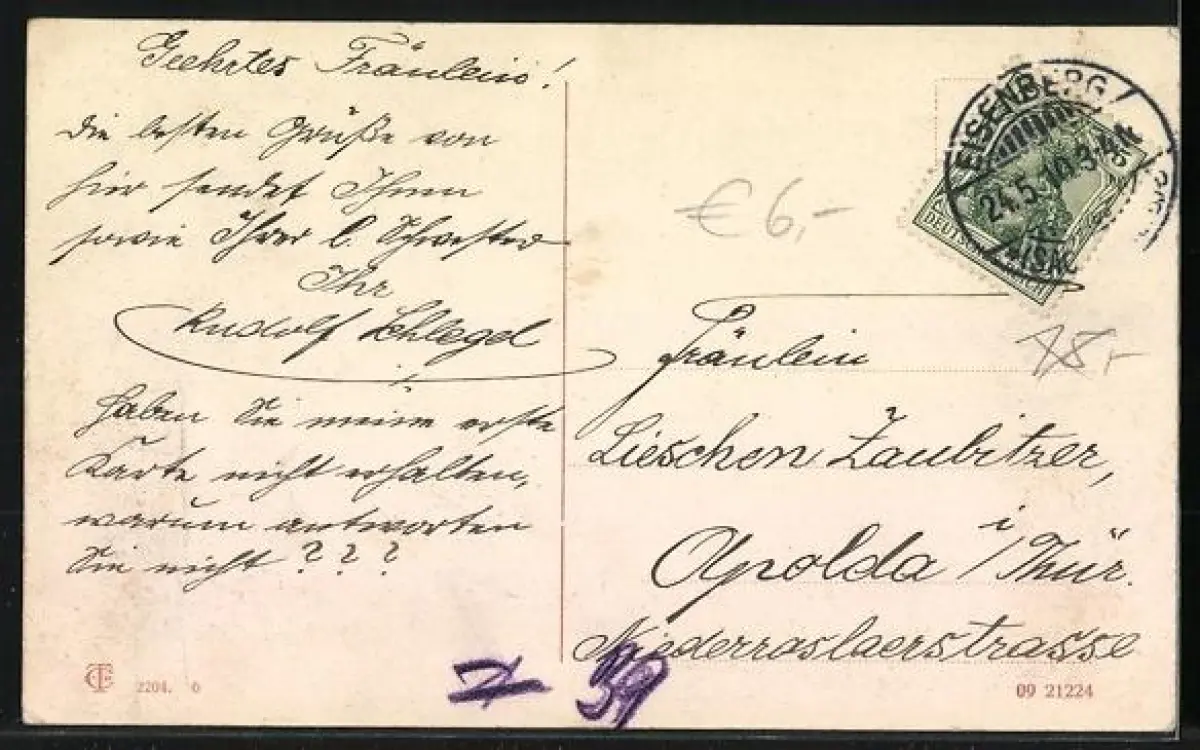 Geehrtes Fräulein!
Die besten Grüße von
hier sendet Ihnen
sowie Ihrer l. Schwester
Ihr
Rudolf Schlegel
Haben Sie meine erste
Karte nicht erhalten,
warum antworten
Sie nicht ? ? ?
EISENBERG
24.5.10. 3-4N
(SAC
DEUTSCHES REICH
€ 6,-
18,-
Fräulein
Lieschen Zaubitzer,
Apolda i/Thür.
Niederroslaerstrasse
39
2204. 6
09 21224